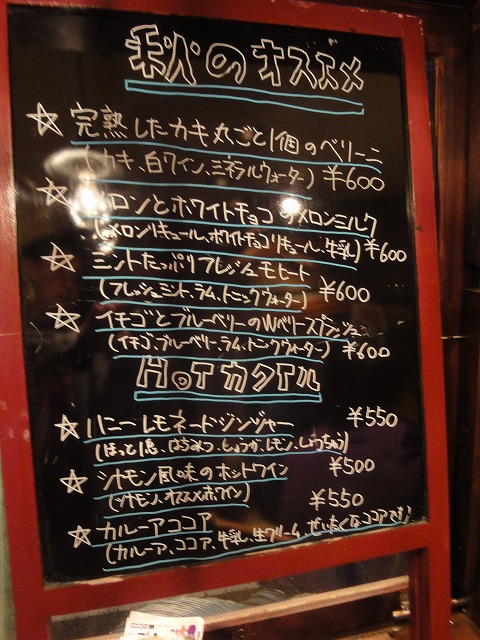 秋のオススメ
☆ 完熟したカキ丸ごと1個のベリーニ
(カキ、白ワイン、ミネラルウォーター) ¥600
☆ メロンとホワイトチョコのメロンミルク
(メロンリキュール、ホワイトチョコリキュール、牛乳) ¥600
☆ ミントたっぷりフレッシュモヒート
(フレッシュミント、ラム、トニックウォーター) ¥600
☆ イチゴとブルーベリーのWベリースプラッシュ
(イチゴ、ブルーベリー、ラム、トニックウォーター) ¥600
HoTカクテル
☆ ハニーレモネードジンジャー ¥550
(ほっと1息、はちみつ、しょうが、レモン、しょうちゅう)
☆ シナモン風味のホットワイン ¥500
(シナモン、オススメ赤ワイン)
☆ カルーアココア ¥550
(カルーア、ココア、牛乳、生クリーム、ぜいたくなココアです!)